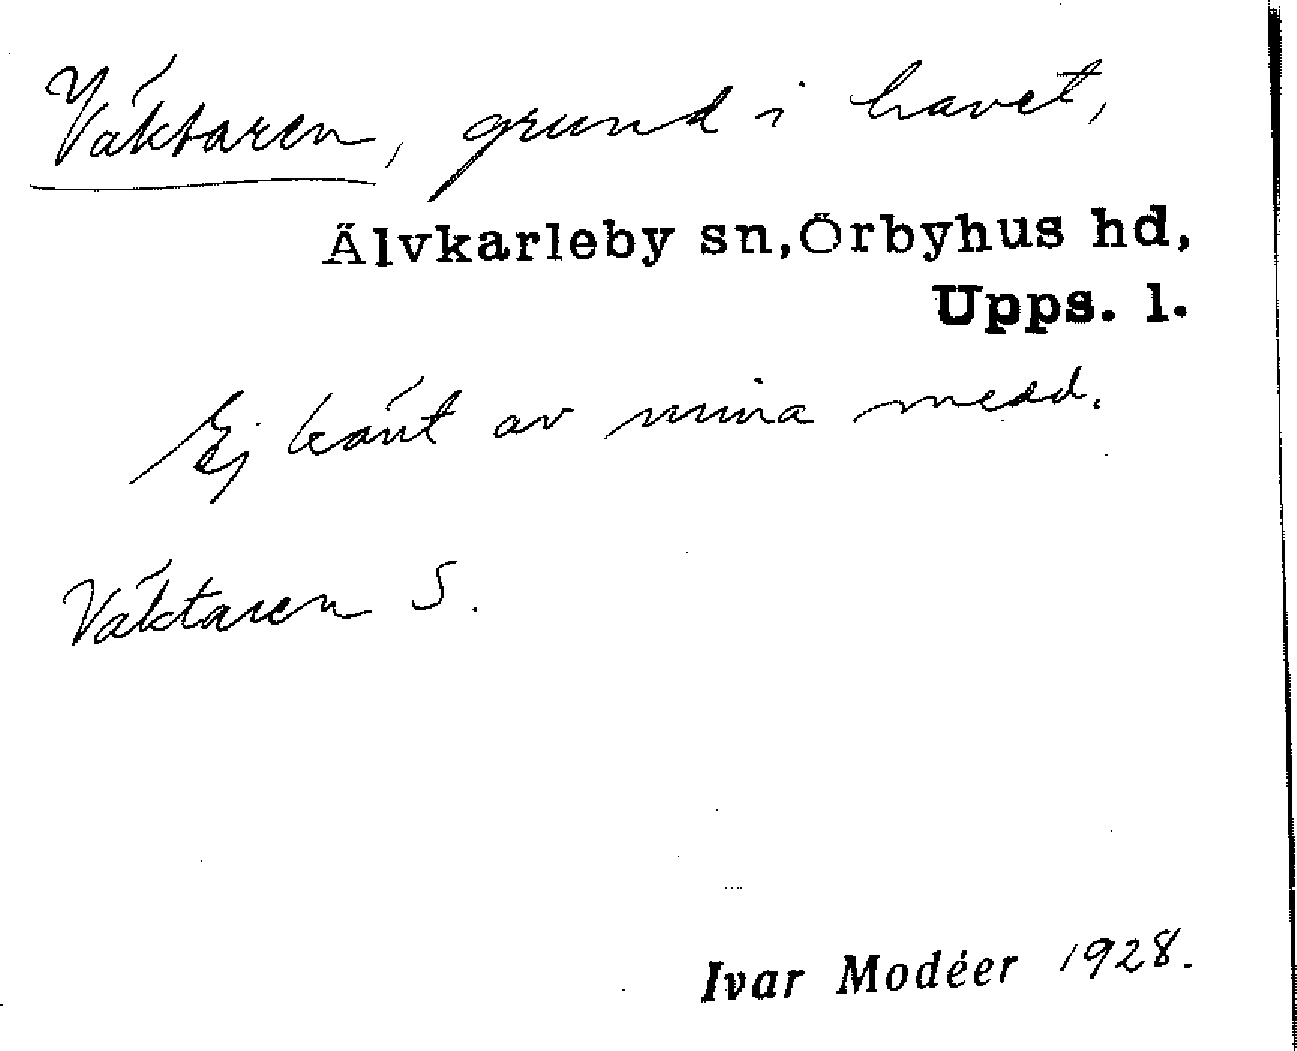 Väktaren, grund i havet,
Älvkarleby sn, Örbyhus hd,
Upps. l.
Ej känt av mina medd.
Väktaren S.
Ivar Modéer 1928.